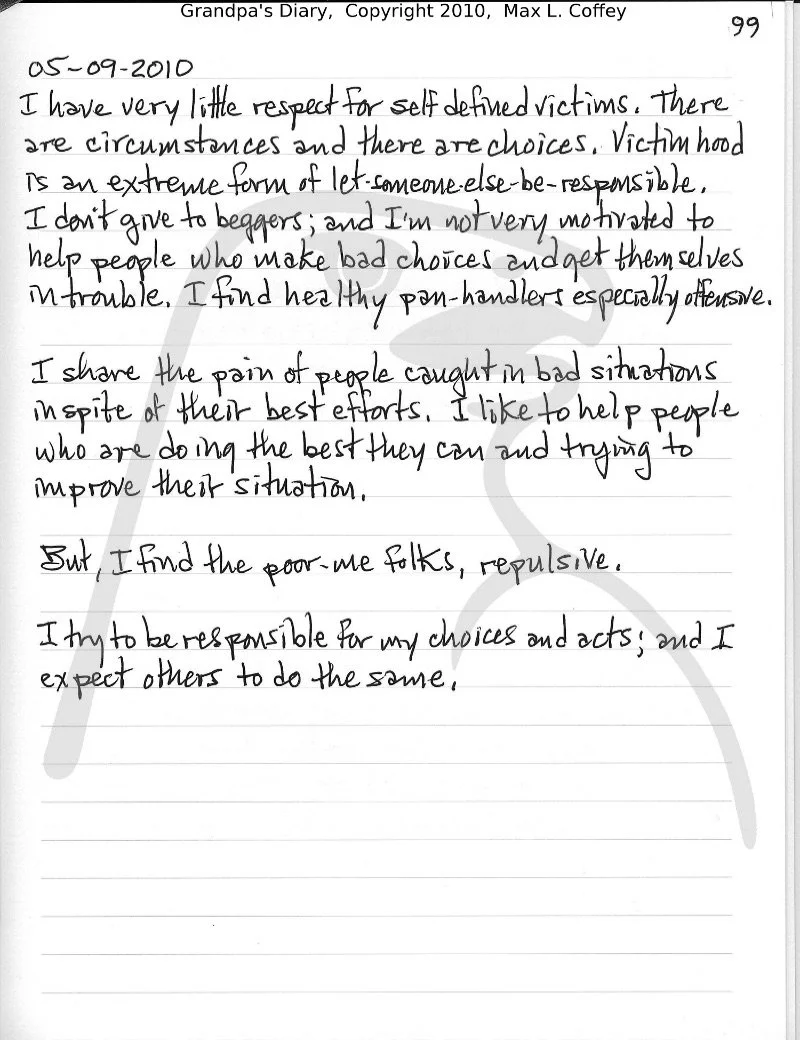 Grandpa's Diary, Copyright 2010, Max L. Coffey
99
05-09-2010
I have very little respect for self defined victims. There
are circumstances and there are choices. Victimhood
is an extreme form of let-someone-else-be-responsible.
I don't give to beggers; and I'm not very motivated to
help people who make bad choices and get themselves
in trouble. I find healthy pan-handlers especially offensive.
I share the pain of people caught in bad situations
in spite of their best efforts. I like to help people
who are doing the best they can and trying to
improve their situation.
But, I find the poor-me folks, repulsive.
I try to be responsible for my choices and acts; and I
expect others to do the same.